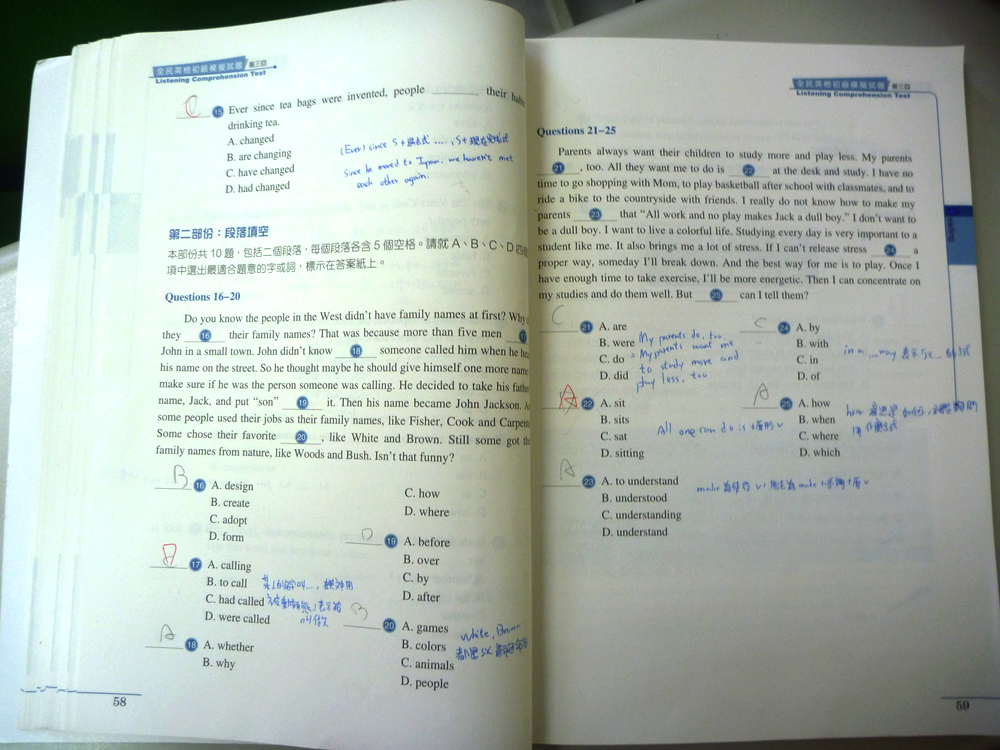 全民英檢初級模擬試題 第三回
Listening Comprehension Test
C 15 Ever since tea bags were invented, people ________ their habits
drinking tea.
A. changed
B. are changing
C. have changed
D. had changed
(Ever) since S+過去式 ...., S+現在完成式
Since he moved to Japan, we haven't met
each other again.
第二部份：段落填空
本部份共 10 題，包括二個段落，每個段落各含 5 個空格。請就 A、B、C、D 四個
項中選出最適合題意的字或詞，標示在答案紙上。
Questions 16–20
Do you know the people in the West didn't have family names at first? Why
they 16 their family names? That was because more than five men 17
John in a small town. John didn't know 18 someone called him when he hea
his name on the street. So he thought maybe he should give himself one more name
make sure if he was the person someone was calling. He decided to take his fathe
name, Jack, and put “son” 19 it. Then his name became John Jackson. A
some people used their jobs as their family names, like Fisher, Cook and Carpen
Some chose their favorite 20 , like White and Brown. Still some got th
family names from nature, like Woods and Bush. Isn't that funny?
B 16 A. design
B. create
C. adopt
D. form
17 A. calling
B. to call
C. had called
D. were called
A 18 A. whether
B. why
C. how
D. where
D 19 A. before
B. over
C. by
D. after
B 20 A. games
B. colors
C. animals
D. people
White, Brown
58
全民英檢初級模擬試題 第三回
Listening Comprehension Test
Questions 21–25
Parents always want their children to study more and play less. My parents
21 , too. All they want me to do is 22 at the desk and study. I have no
time to go shopping with Mom, to play basketball after school with classmates, and to
ride a bike to the countryside with friends. I really do not know how to make my
parents 23 that “All work and no play makes Jack a dull boy.” I don't want to
be a dull boy. I want to live a colorful life. Studying every day is very important to a
student like me. It also brings me a lot of stress. If I can't release stress 24 a
proper way, someday I'll break down. And the best way for me is to play. Once I
have enough time to take exercise, I'll be more energetic. Then I can concentrate on
my studies and do them well. But 25 can I tell them?
C 21 A. are
B. were
C. do
D. did
My parents do, too.
= My parents want me
to study more and
play less, too
A 22 A. sit
B. sits
C. sat
D. sitting
All one can do is +原形 v
A 23 A. to understand
B. understood
C. understanding
D. understand
C 24 A. by
B. with
C. in
D. of
in a ... way 表示以... 的方式
A 25 A. how
B. when
C. where
D. which
Reading
59